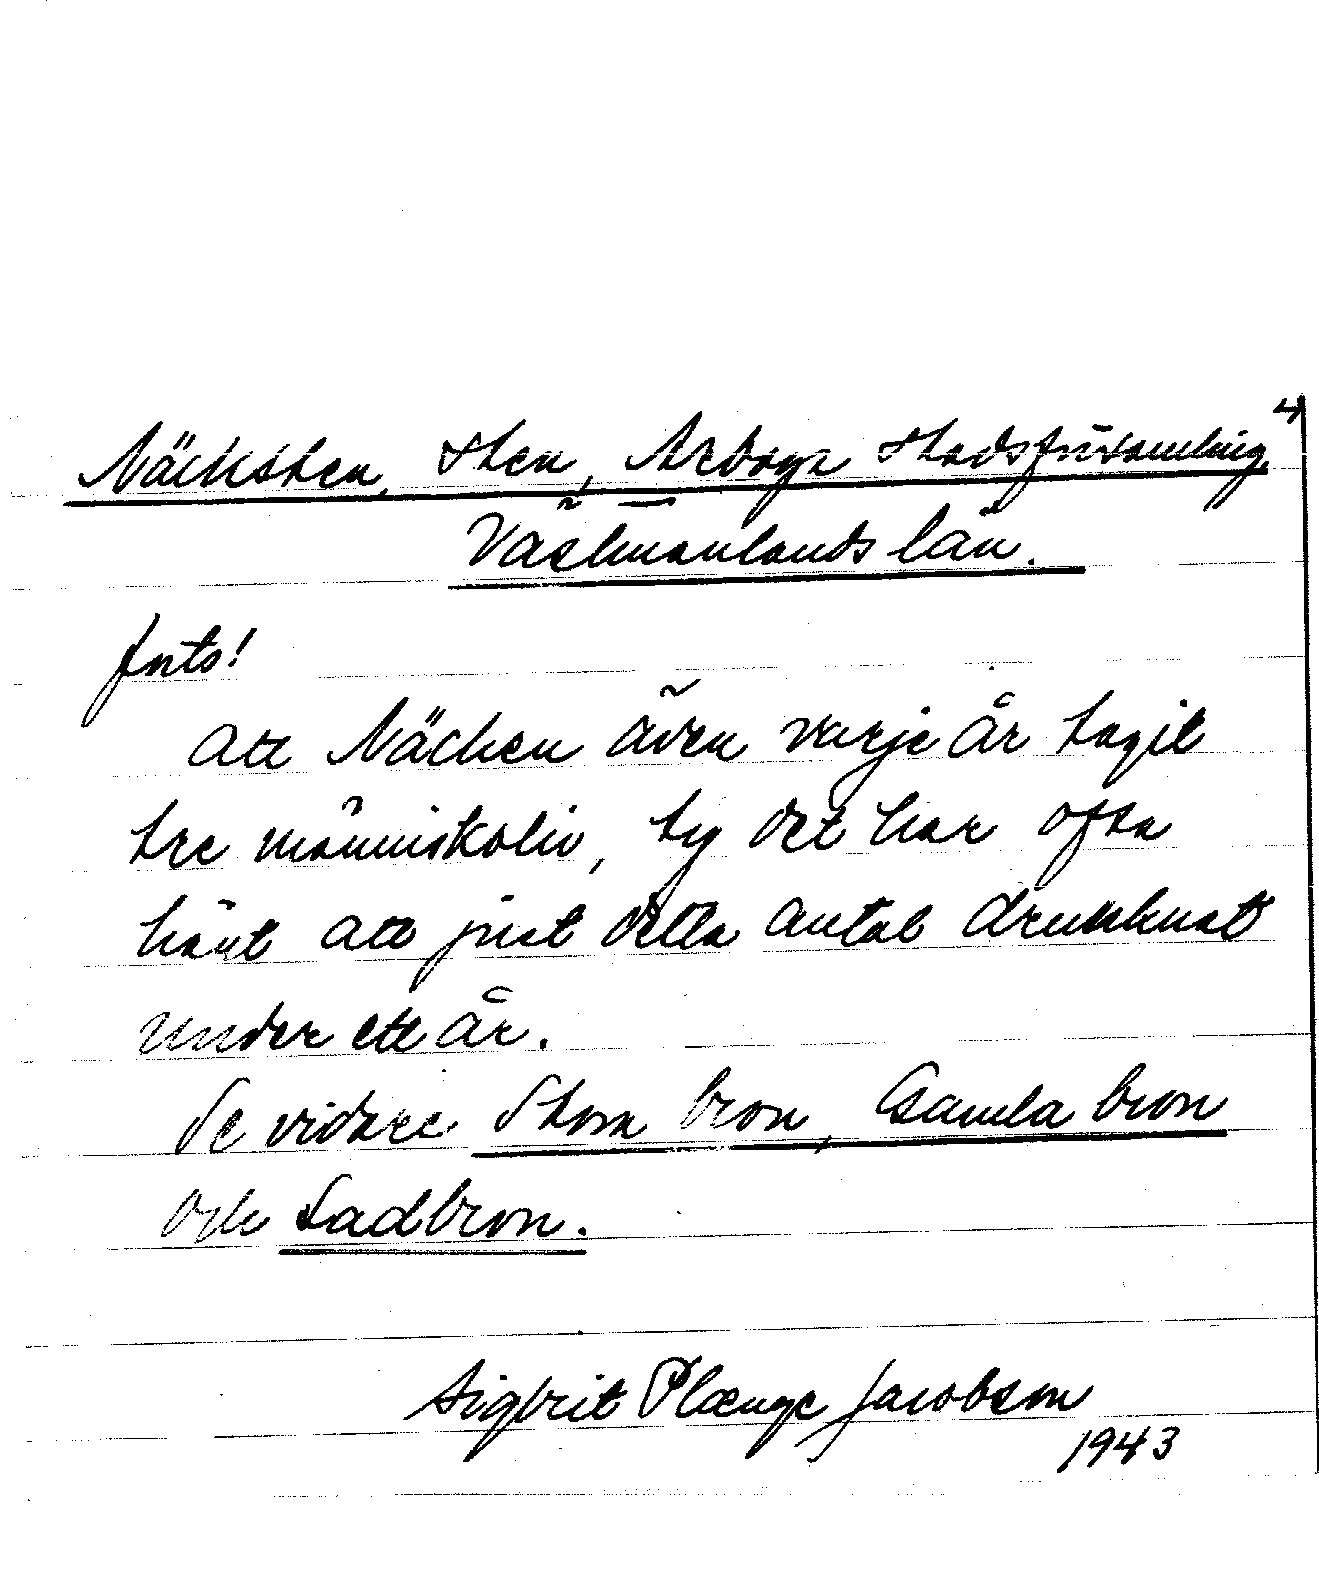 4
Näcksten, sten, Arboga stadsförsamling,
Västmanlands län.
forts!
att Näcken även varje år tagit
tre människoliv, ty det har ofta
hänt att just detta antal drunknat
under ett år.
Se vidare Stora bron, Gamla bron
och Ladbron.
Sigbrit Plænge Jacobson
1943